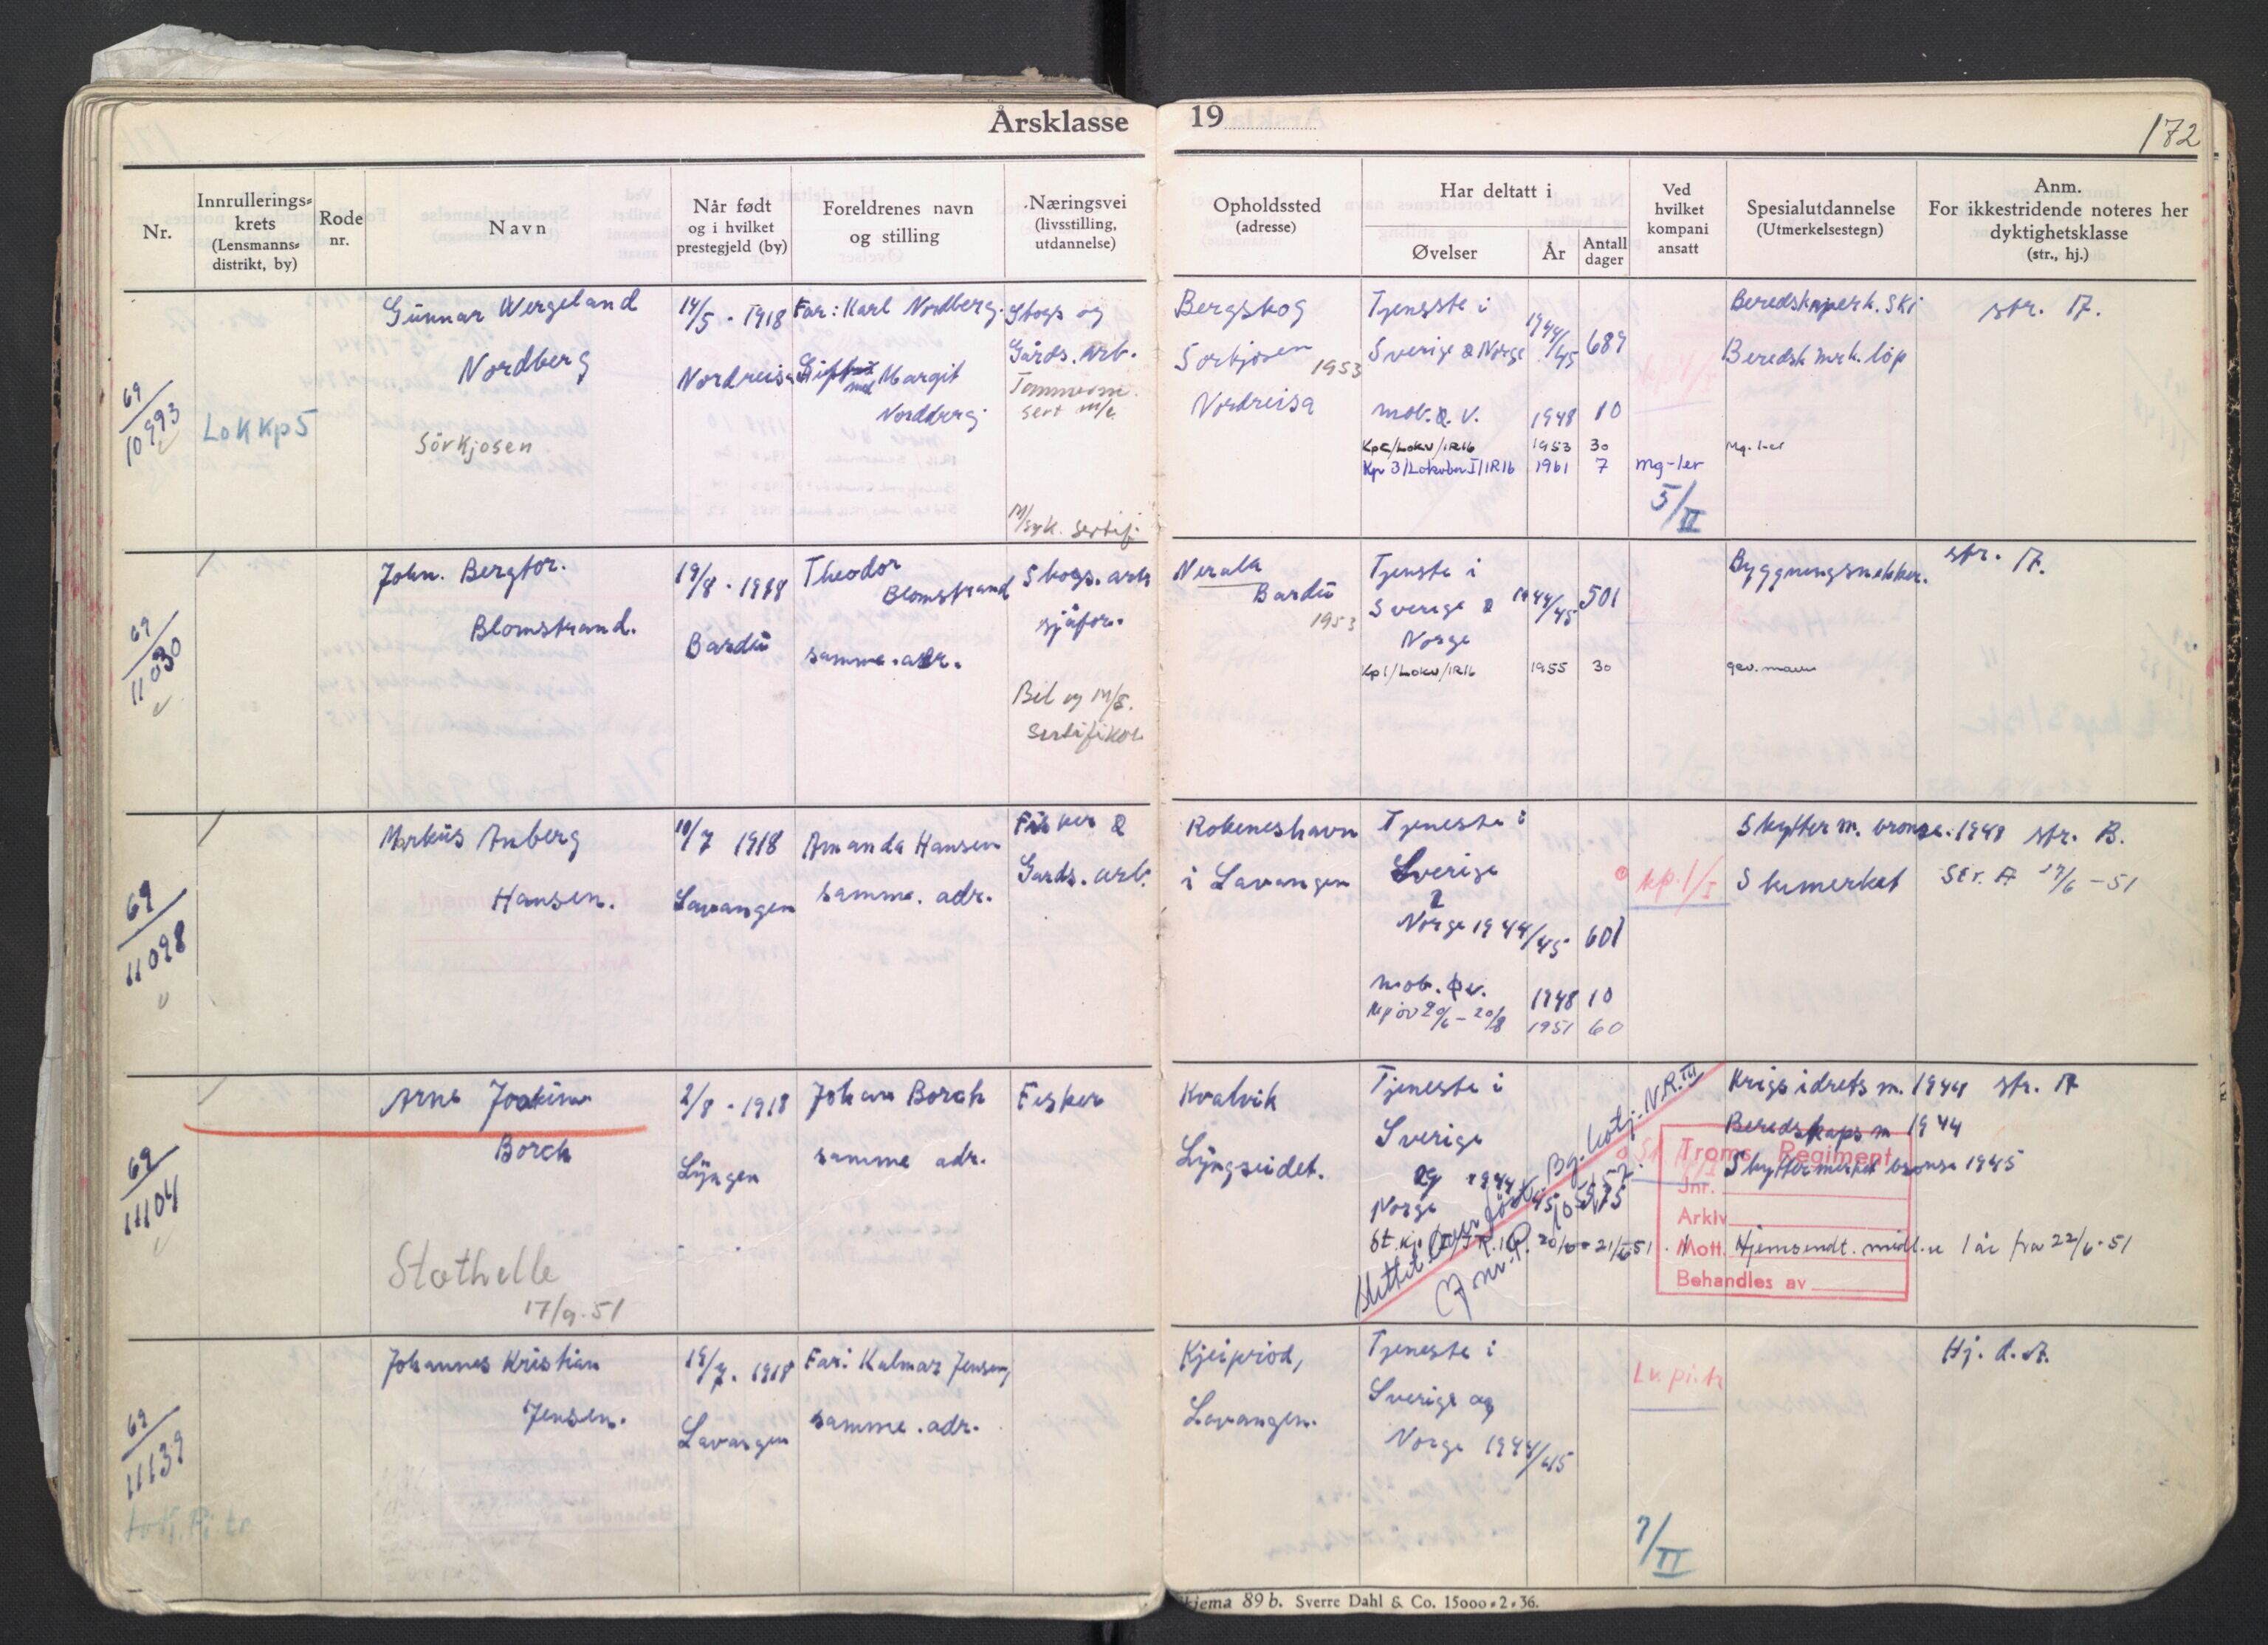 Årsklasse 19
172
Nr.
Innrullerings-
krets
(Lensmanns-
distrikt, by)
Rode
nr.
Navn
Når født
og i hvilket
prestegjeld (by)
Foreldrenes navn
og stilling
Næringsvei
(livsstilling,
utdannelse)
Opholdssted
(adresse)
Har deltatt i
Øvelser
År
Antall
dager
Ved
hvilket
kompani
ansatt
Spesialutdannelse
(Utmerkelsestegn)
Anm.
For ikkestridende noteres her
dyktighetsklasse
(str., hj.)
69/10993
Lok Kp 5
Gunnar Wergeland
Nordberg
Sörkjosen
14/5 - 1918
Nordreisa
Far: Karl Nordberg.
Gift med Margit
Nordberg
Skogs og
Gårds. arb.
sert m/c
M/syk. sertif.
Bergskog
Sorkjosen 1953
Nordreisa
Tjeneste i
Sverige & Norge 1944/45 689
mob. ø. v. 1948 10
Kp 2/Lokv/IR16 1953 30
Kp 3/Lokvbn I/IR16 1961 7
mg-ler
5/II
Beredskaperk. Ski
Beredsk mrk. löp
Mg. l-er
str. A.
69/11030
John. Bergtor.
Blomstrand.
19/8 - 1918
Bardu
Theodor
Blomstrand
samme. adr.
Skogs. arb
sjåfør.
Bil og M/S.
Sertifikat
Bardu
1953
Tjeneste i
Sverige & 1944/45 501
Norge
Kp 1/Lokv/IR16 1955 30
gev. mann
Byggningsnekker.
str. A.
69/11098
Markus Anberg
Hansen.
10/7 1918
Lavangen
Amanda Hansen
samme. adr.
Fisker &
Gards. arb.
Rokeneshavn
i Lavangen
Tjeneste i
Sverige
&
Norge 1944/45 601
mob. øv. 1948 10
Rep öv 20/6 - 20/8 1951 60
kp. 1/I
Skytter m. bronse. 1948
Skimerket
str. B.
Str. A 27/6 - 51
69/11104
Arne Joakim
Borch
Stathelle
17/9. 51
2/8 - 1918
Lyngen
Johan Borch
samme adr.
Fisker
Kvalvik
Lyngseidet.
Tjeneste i
Sverige
og 1944
Norge 45
Krigsidrets m. 1944
Beredskaps m 1944
Skyttermerket bronse 1945
str. A
Troms Regiment
Jnr.
Arkiv
Mott.
Behandles av
Hjemsendt. midl. u 1 år fra 22/6 - 51
69/11139
Lok. Pi. tr
Johannes Kristian
Jensen.
19/7. 1918
Lavangen
Far: Kalmar Jensen,
samme. adr.
Lavangen.
Tjeneste i
Sverige og
Norge 1944/45
Lv. pi. tr
7/II
Hj. d. A.
Skjema 89 b. Sverre Dahl & Co. 15000-2-36.